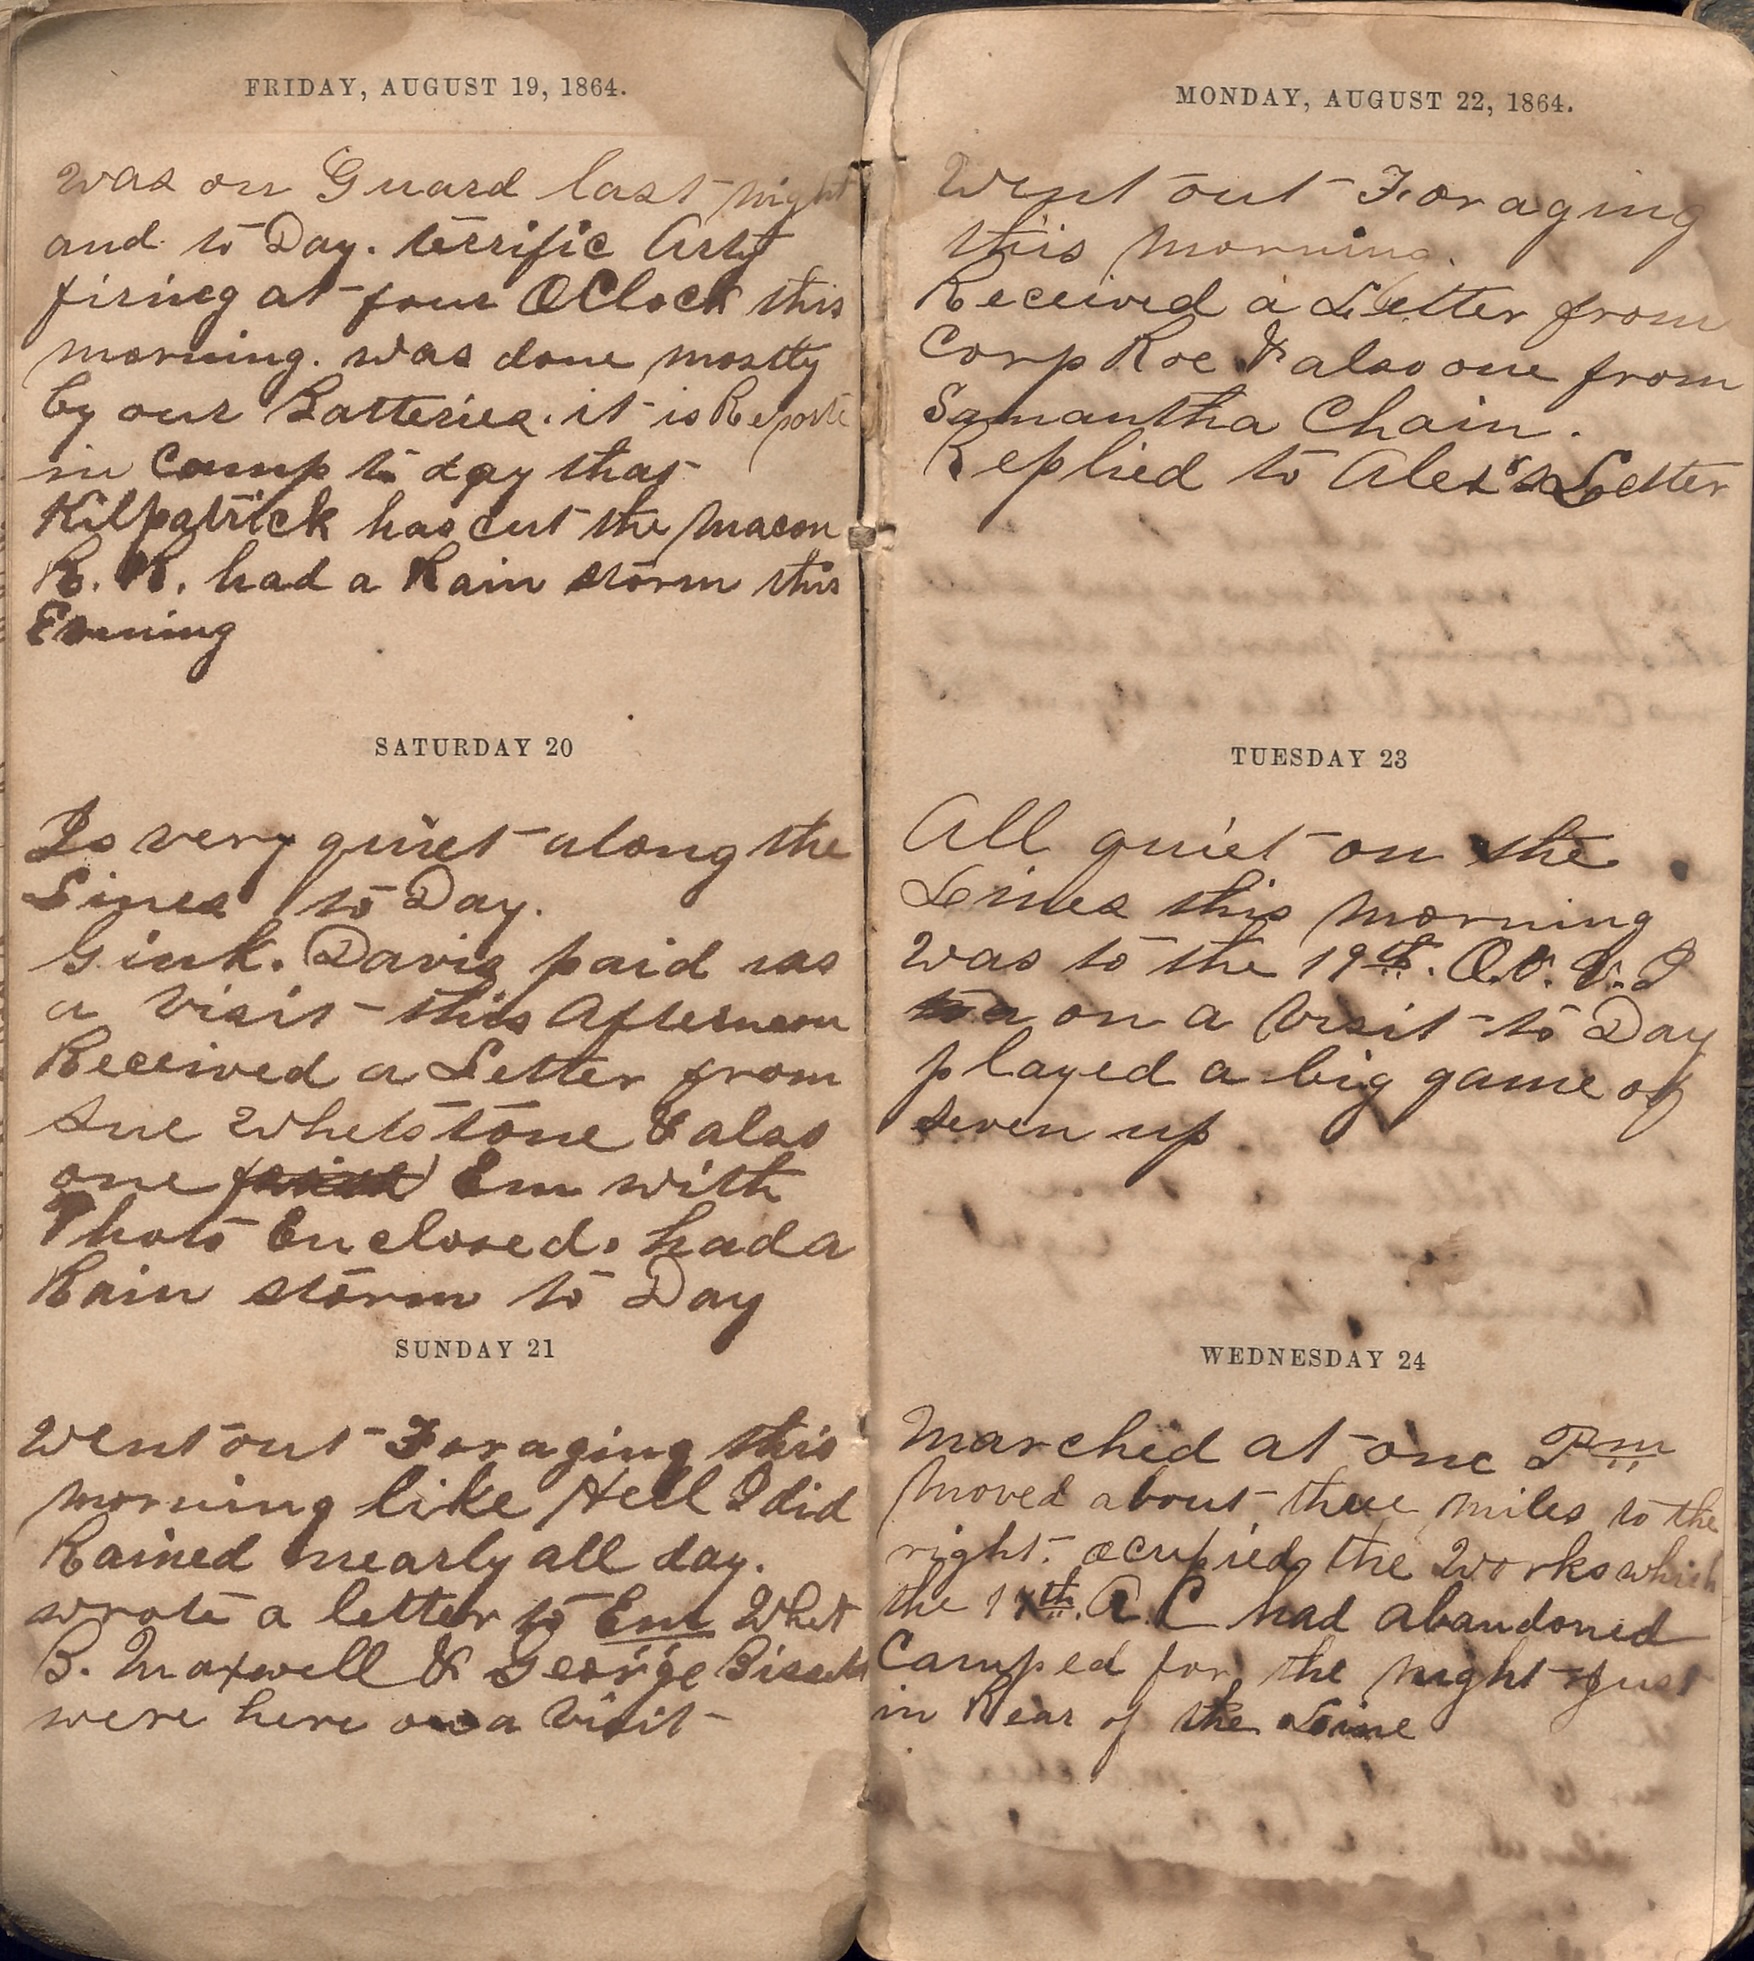 FRIDAY, AUGUST 19, 1864.
was on Guard last night
and to Day. terrific Arty
firing at four OClock this
morning. was done mostly
by our Batteries. it is Reporte
in Camp to day that
Kilpatrick has cut the Macon
R. R. had a Rain storm this
Evening
SATURDAY 20
Is very quiet along the
Lines to Day.
Gink. Davis paid us
a Visit this Afternoon
Received a Letter from
Sue Whetstone & also
one Em with
Photo Enclosed. had a
Rain storm to Day
SUNDAY 21
Went out Foraging this
morning like Hell I did
Rained nearly all day.
wrote a letter to Em Whet
B. Maxwell & George
were here on a Visit
MONDAY, AUGUST 22, 1864.
Went out Foraging
this morning.
Received a Letter from
Corp Roe & also one from
Samantha Chain.
Replied to Alex's Letter
TUESDAY 23
All quiet on the
Lines this morning
Was to the 19th. O. V. V. I
on a Visit to Day
played a big game of
seven up
WEDNESDAY 24
Marched at one Pm
Moved about three miles to the
right. ocupied the Works which
the 17th. A. C had abandoned
Camped for the night just
in Rear of the Line